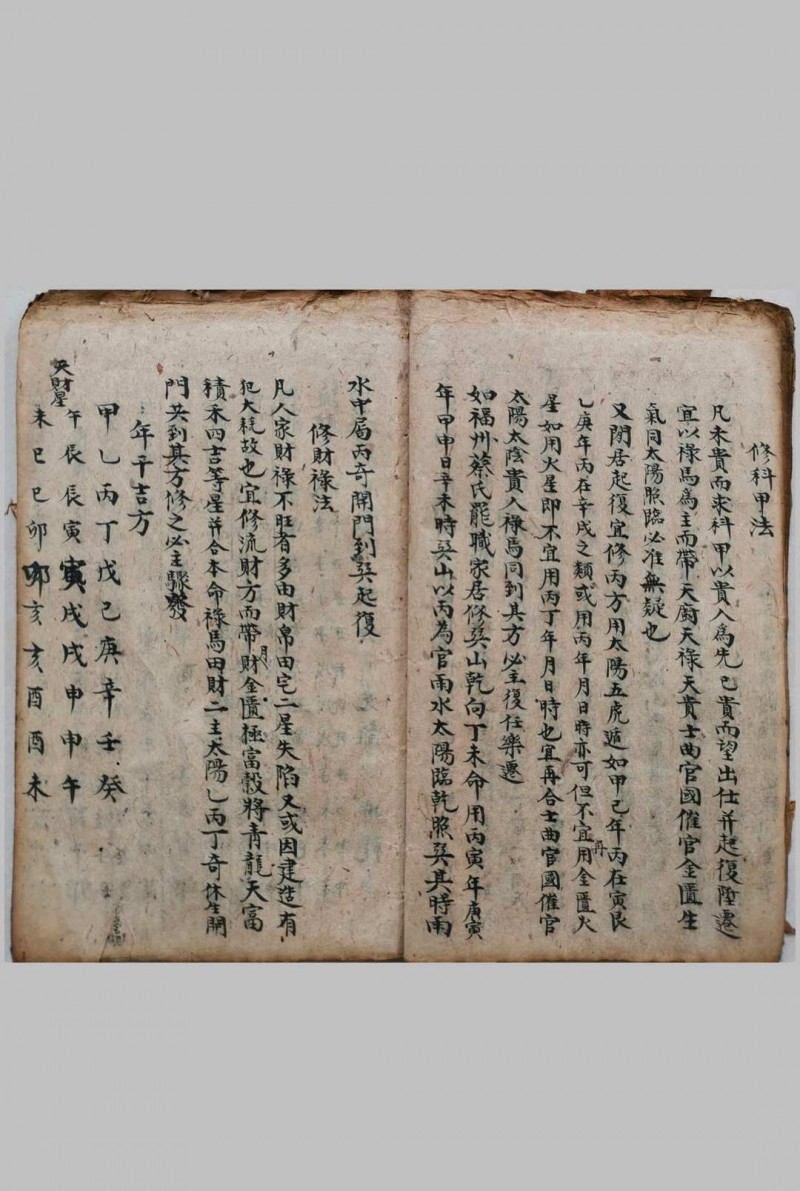 修科甲法
凡未貴而求科甲以貴人為先已貴而望出仕并起復陞遷
宜以祿馬為主而帶天廚天祿天貴士曲官國催官金匱生
氣同太陽照臨必准無疑也
又閑居起復宜修丙方用太陽五虎遁如甲己年丙在寅艮
乙庚年丙在辛戌之類或用丙年月日時亦可但不宜用金匱火
再
星如用火星即不宜用丙丁年月日時也宜再合士曲官國催官
太陽太陰貴人祿馬同到其方必主復任樂遷
如福州蔡氏罷職家居修巽山乾向丁未命用丙寅年庚寅
年甲申日辛未時巽山以丙為官雨水太陽臨乾照巽其時雨
水中局丙奇開門到巽起復
修財祿法
凡人家財祿不旺者多由財帛田宅二星失陷又或因建造有
犯大耗故也宜修流財方而帶財金匱極富穀將青龍天富
月
積禾四吉等星并合本命祿馬田財二主太陽乙丙丁奇休生開
門共到其方修之必主驟發
年干吉方
甲乙丙丁戊己庚辛壬癸
天財星
午辰辰寅寅戌戌申申午
未巳巳卯卯亥亥酉酉未